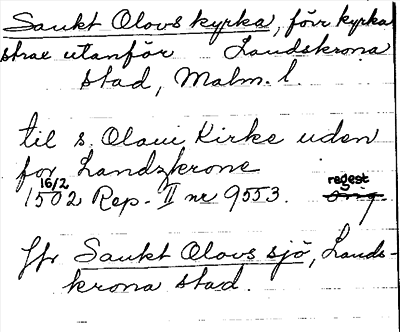 Sankt Olovs kyrka, förr kyrka
strax utanför Landskrona
stad, Malm. l.
til s. Olaui Kirke uden
for Landzkrone
16/2 regest
1502 Rep. II nr 9553. orig.
Jfr Sankt Olovs sjö, Lands-
krona stad.